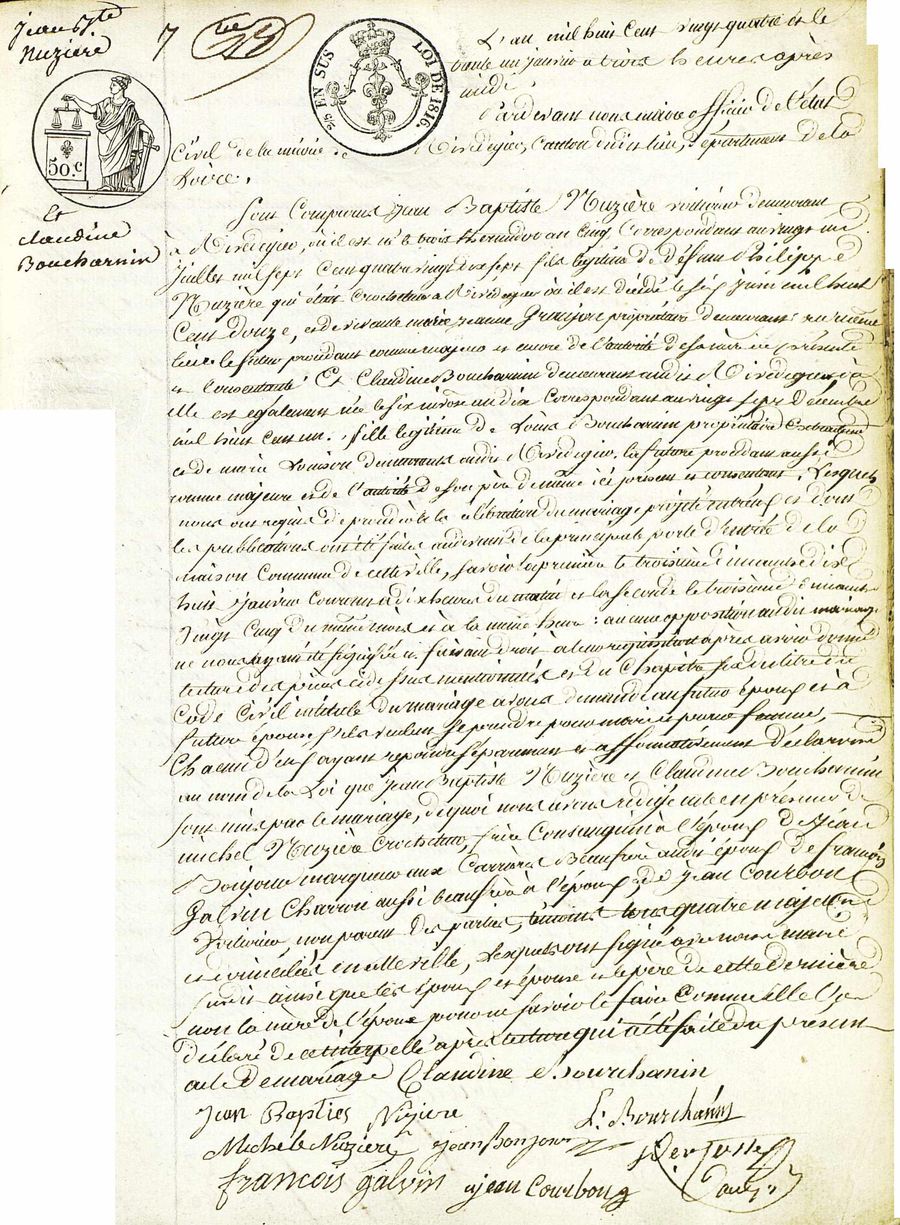 Jean Bte
Nuzière
7
2/5 EN SUS LOI DE 1816.
50.c
Et
Claudine
Boucharnin
L'an mil huit Cent vingt quatre et le
trente un janvier à trois heures après
midi
Pardevant nous maire officier de l'état
Civil de la mairie de Rivedegier, Canton dudit lieu, département de la
Loire.
Sont Comparus Jean Baptiste Nuzière voiturier demeurant
à Rivedegier, où il est né le trois thermidor an Cinq Correspondant au vingt un
juillet mil sept Cent quatre vingt dix sept fils légitime de défunt Philippe
Nuzière qui était Crocheteur à Rivedegier où il est décédé le six juin mil huit
Cent douze, et de vivante marie jeanne propriétaire demeurant au même
lieu le futur procédant comme majeur et encore de l'autorité de sa mère ici présente
et Consentante Et Claudine Boucharnin demeurant audit Rivedegier où
elle est également née le six nivose an dix Correspondant au vingt sept décembre
mil huit Cent un. fille légitime de Louis Boucharnin propriétaire
et de marie Louison demeurants audit Rivedegier, la future procédant aussi
comme majeure et de l'autorité de son père ici présent et consentant, Lesquels
nous ont requis de procéder à la célébration du mariage projeté entr'eux et dont
les publications ont été faites audevant de la principale porte d'entrée de la
maison Commune de cette ville, savoir la première le troisième dimanche dix
huit janvier Courant à dix heures du matin et la seconde le troisième dimanche
vingt Cinq du même mois et à la même heure : aucune opposition audit mariage
ne nous ayant été signifiée faisant droit à leur réquisition après avoir donné
lecture des pièces ci dessus mentionnées et du Chapitre six du titre du
Code Civil intitulé du mariage avons demandé au futur époux et à
future épouse s'ils veulent se prendre pour mari et pour femme,
Chacun d'eux ayant répondu séparément et affirmativement déclarons
au nom de la Loi que Jean Baptiste Nuzière et Claudine Boucharnin
sont unis par le mariage, de quoi nous avons rédigé acte en présence de
michel Nuzière Crocheteur, frère Consanguin à l'époux de Jean
Bonjour marqueur aux Carrières Beaufrère audit époux de françois
Galvin Charron aussi beaufrère à l'époux, de Jean Courbon
Voiturier, non parent des parties, témoins tous quatre majeurs
et domiciliés en cette ville, Lesquels ont signé avec nous maire
susdit ainsi que les époux et épouse et le père de cette dernière
non la mère de l'époux pour ne savoir le faire Comme elle l'a
déclaré de ce interpellée après lecture qui a été faite du présent
acte de mariage Claudine Bourchanin
Jean Bapties Nuziere L. Bourchanin
Michele Nuzière Jean Bonjour
françois galvin Jean Courbon